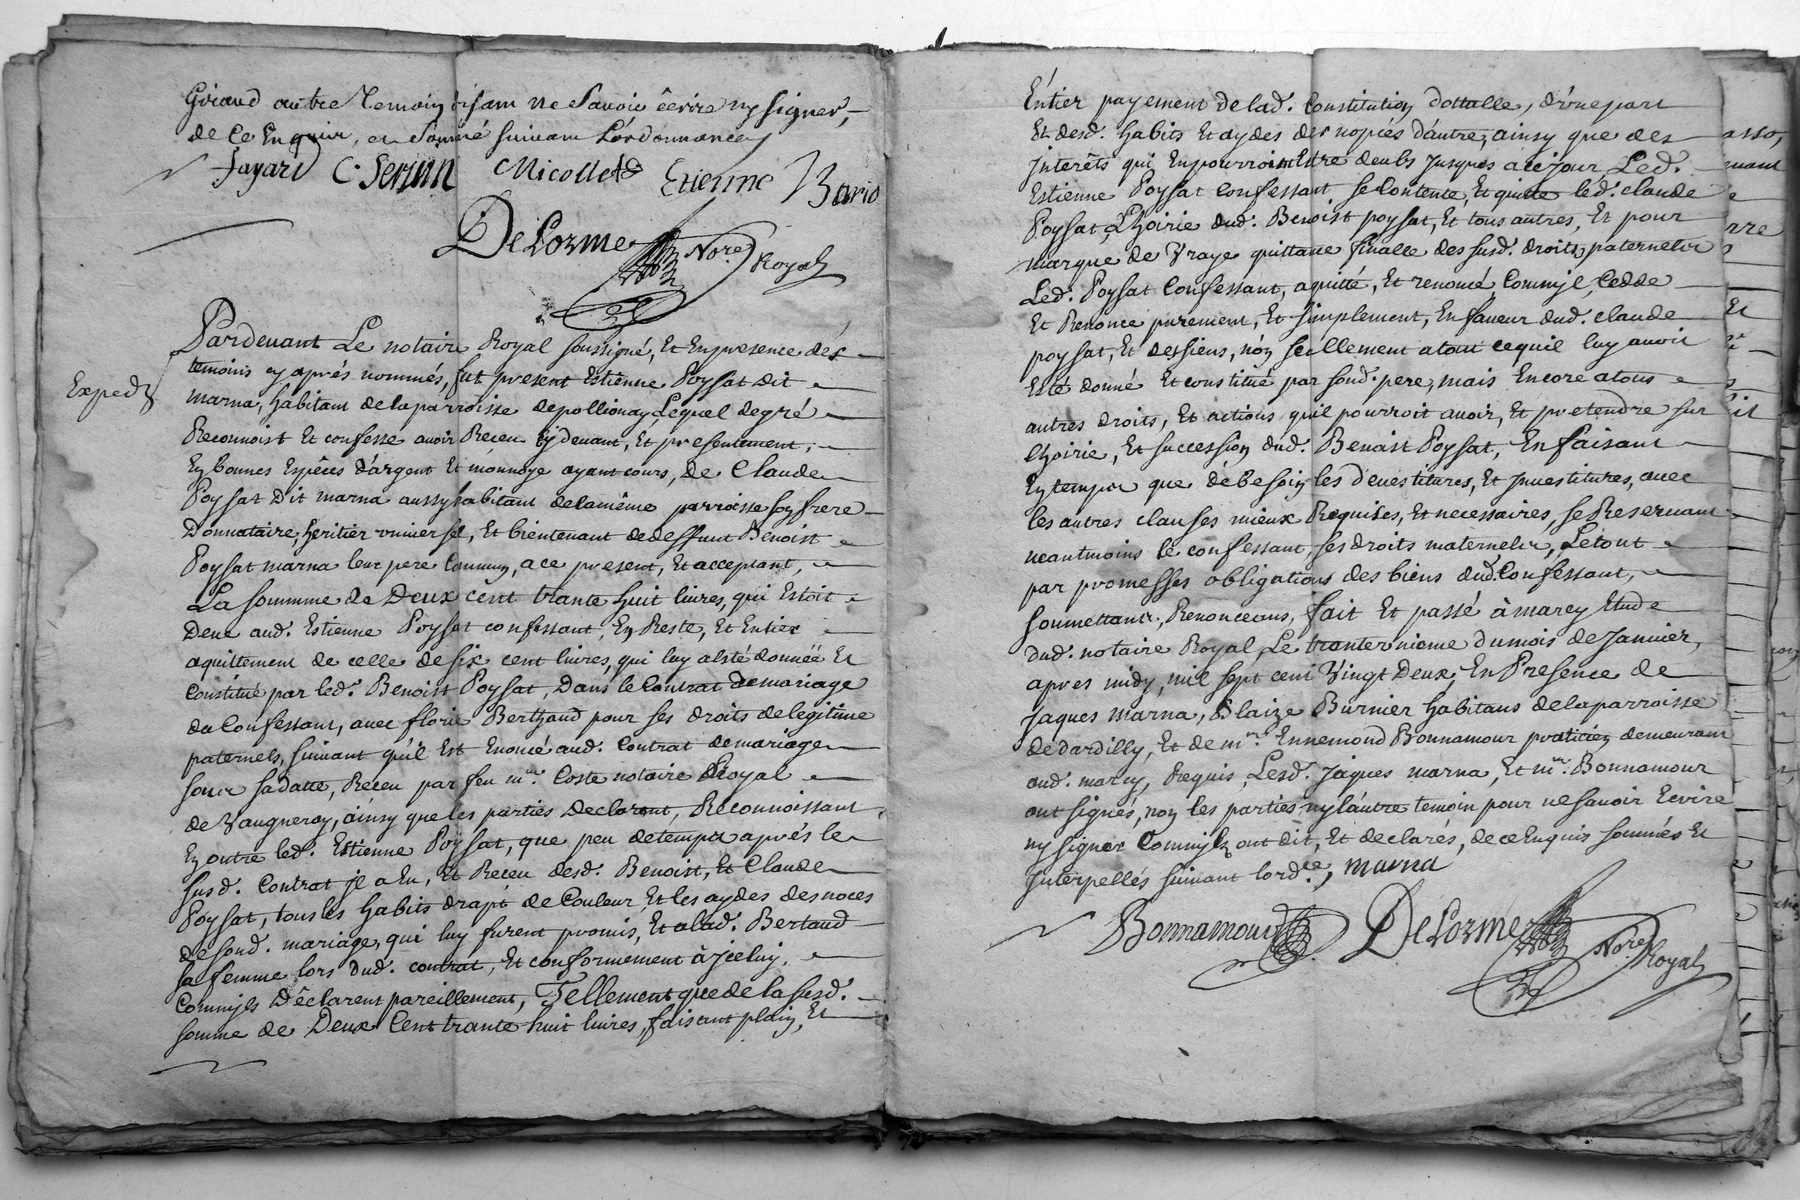 Giraud autre temoin disant ne Savoir ècrire ny signer,
de Ce Enquis, et Sommé suivant L'ordonnance
Fayard C. Serum Nicollet Etienne Bario
DeLorme Nore. Royal
Pardevant Le notaire Royal soussigné, Et En presence dés
temoins cy aprés nommés, fut present Estienne Poysat dit
Expedz
marna, habitant de la parroisse de pollionay, Lequel de gré
Reconnoist Et confesse avoir Receu Cy devant, Et presentement,
En bonnes Espêces d'argent Et monnoye ayant cours, de Claude
Poysat Dit marna aussy habitant de la même parroisse son frere
Donnataire, heritier universel, Et bientenant de deffunt Benoist
Poysat marna leur pere Commun, a ce present, Et acceptant,
La sommme de Deux cent trante huit livres, qui Estoit
Deue aud. Estienne Poysat confessant, En Reste, Et Entier
aquittement de celle de six cent livres, qui luy a esté donnëe Et
Constitué par led. Benoist Poysat, Dans le Contrat de mariage
du Confessant, avec florie Berthaud pour ses droits de legitime
paternels, suivant qu'il Est Enoncé aud. Contrat de mariage
sous sa datte, Receu par feu mre. Coste notaire Royal
de Vaugneray, ainsy que les parties Declarent, Reconnoissant
En outre led. Estienne Poysat, que peu de temps aprés le
susd. Contrat jl a Eu, Et Receu desd. Benoist, Et Claude
Poysat, tous les habits drapt de Couleur, Et les aydes des noces
de sond. mariage, qui luy furent promis, Et a lad. Bertaud
sa femme lors dud. contrat, Et conformement à jceluy,
Comm'jls Dêclarent pareillement, Tellement que de la susd.
somme de Deux Cent trante huit livres, faisant plain, Et
Entier payement de lad. Constitution dottalle, d'une part
Et desd. habits Et aydes des nopces d'autre, ainsy que des
jnterêts qui En pourroint Estre deubs jusques a ce jour, Led.
Estienne Poysat Confessant se Contente, Et quitte led. Claude
Poysat, L'hoirie dud. Benoist poysat, Et tous autres, Et pour
marque de Vraye quittance finalle des susd. droits paternels
Led. Poysat Confessant, a quitté, Et renoncé Comm'jl Cedde
Et Renonce purement, Et simplement, En faveur dud. Claude
poysat, Et des siens, nón seullement a tout ce quil luy avoit
Esté donné Et constitué par sond. pere, mais Encore a tous
autres droits, Et actions quil pourroit avoir, Et pretendre sur
L'hoirie, Et succession dud. Benoist Poysat, En faisant
En temps que de besoin les devestitures, Et jnvestitures, avec
les autres clauses mieux Requises, Et necessaires, se Reservant
neantmoins le confessant, ses droits maternels, Le tout
par promesses obligations des biens dud. Confessant,
soumettant, Renonceans, fait Et passé à marcy Etude
dud. notaire Royal, Le tranteuniême du mois de Janvier,
apres midy, mil sept cent Vingt Deux, En Presence de
Jaques marna, Blaize Burnier habitans de la parroisse
de dardilly, Et de mre. Ennemond Bonnamour praticien demeurant
aud. marcy, Requis, Lesd. Jaques marna, Et mre. Bonnamour
ont signés, non les parties ny l'autre temoin pour ne savoir Ecrire
ny signer Comm'jls ont dit, Et declarés, de ce Enquis sommés Et
jnterpellés suivant lordce, marna
Bonnamour DeLorme Nore. Royal